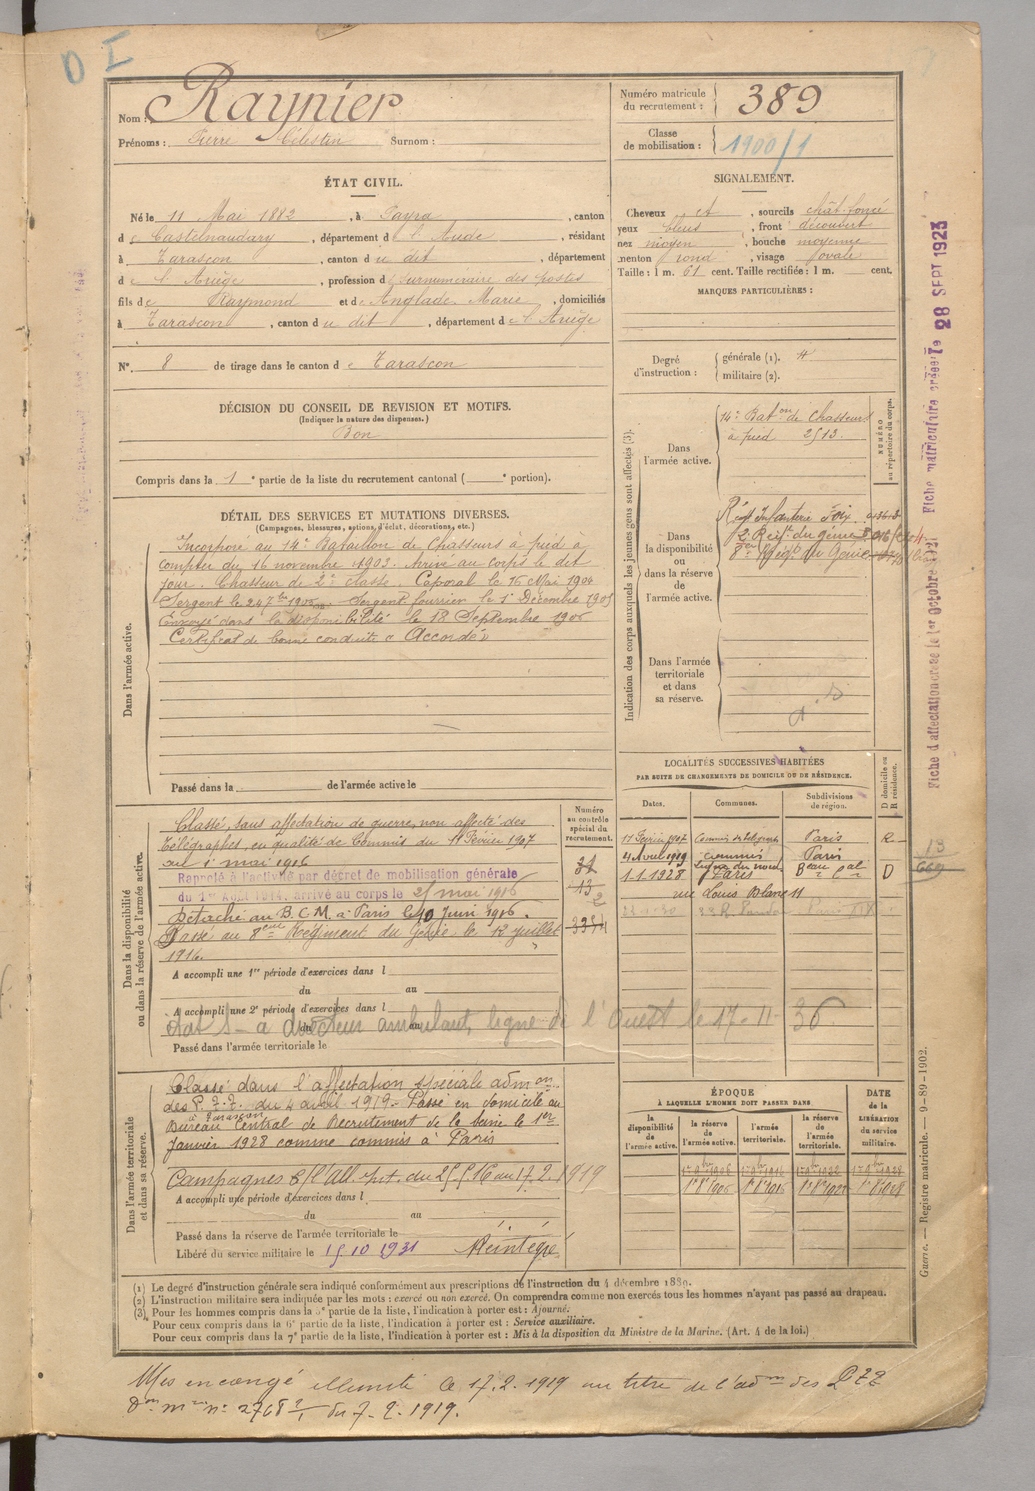 D I
Nom : Raynier
Prénoms : Pierre Célestin Surnom :
Numéro matricule du recrutement : 389
Classe de mobilisation : 1900/1
ÉTAT CIVIL.
Né le 11 Mai 1882, à Payra, canton
de Castelnaudary, département de l'Aude, résidant
à Tarascon, canton du dit, département
de l'Ariège, profession de surnuméraire des postes
fils de Raymond et de Anglade Marie, domiciliés
à Tarascon, canton du dit, département de l'Ariège
N° 8 de tirage dans le canton de Tarascon
SIGNALEMENT.
Cheveux ct, sourcils chât. foncé
yeux bleus, front découvert
nez moyen, bouche moyenne
menton rond, visage ovale
Taille : 1 m. 61 cent. Taille rectifiée : 1 m. cent.
MARQUES PARTICULIÈRES :
Degré d'instruction : générale (1).
militaire (2).
DÉCISION DU CONSEIL DE REVISION ET MOTIFS.
(Indiquer la nature des dispenses.)
Bon
Compris dans la 1e partie de la liste du recrutement cantonal ( e portion).
DÉTAIL DES SERVICES ET MUTATIONS DIVERSES.
(Campagnes, blessures, actions d'éclat, décorations, etc.)
Dans l'armée active.
Incorporé au 14e Bataillon de Chasseurs à pied à
compter du 16 novembre 1903. Arrivé au corps le dit
jour. Chasseur de 2e classe. Caporal le 16 Mai 1904
Sergent le 24 7bre 1905. Sergent fourrier le 1er Décembre 1905
Envoyé dans la disponibilité le 18 Septembre 1906
Certificat de bonne conduite « Accordé »
Passé dans la de l'armée active le
Indication des corps auxquels les jeunes gens sont affectés (3).
NUMÉRO au répertoire du corps.
Dans l'armée active.
14e Baton de Chasseurs
à pied 2513.
Dans la disponibilité ou dans la réserve de l'armée active.
Régt Infanterie Foix
8e Régt du Génie
Dans l'armée territoriale et dans sa réserve.
Dans la disponibilité ou dans la réserve de l'armée active.
Numéro au contrôle spécial du recrutement.
Classé, sans affectation de guerre, non affecté des
télégraphes, en qualité de Commis du 11 Février 1907
au 1er mai 1916
Rappelé à l'activité par décret de mobilisation générale
du 1er Août 1914, arrivé au corps le 25 mai 1916
Détaché au B.C.M. à Paris le 10 Juin 1916.
Passé au 8eme Régiment du Génie le 12 juillet
1916.
A accompli une 1re période d'exercices dans l
du au
A accompli une 2e période d'exercices dans l
du au
ambulant, ligne de l'Ouest le 17-11-36
Passé dans l'armée territoriale le
LOCALITÉS SUCCESSIVES HABITÉES
PAR SUITE DE CHANGEMENTS DE DOMICILE OU DE RÉSIDENCE.
Dates. Communes. Subdivisions de région. D domicile ou R résidence.
11 Février 1907 Paris R
4 Avril 1919 commis Paris
1-1-1928 Paris D
rue Louis Blanc 11
Dans l'armée territoriale et dans sa réserve.
Classé dans l'affectation spéciale admon
des P.T.T. du 4 avril 1919. Passé en domicile au
à Tarascon
Bureau Central de Recrutement de la Seine le 1er
Janvier 1928 comme commis à Paris
Campagnes C/l'All. du 25-5-16 au 17.2.1919
A accompli une période d'exercices dans l
du au
Passé dans la réserve de l'armée territoriale le
Libéré du service militaire le 15 10 1931 Réintégré
ÉPOQUE
À LAQUELLE L'HOMME DOIT PASSER DANS
la disponibilité de l'armée active. la réserve de l'armée active. l'armée territoriale. la réserve de l'armée territoriale.
DATE de la LIBÉRATION du service militaire.
(1) Le degré d'instruction générale sera indiqué conformément aux prescriptions de l'instruction du 4 décembre 1889.
(2) L'instruction militaire sera indiquée par les mots : exercé ou non exercé. On comprendra comme non exercés tous les hommes n'ayant pas passé au drapeau.
(3) Pour les hommes compris dans la 5e partie de la liste, l'indication à porter est : Ajourné.
Pour ceux compris dans la 6e partie de la liste, l'indication à porter est : Service auxiliaire.
Pour ceux compris dans la 7e partie de la liste, l'indication à porter est : Mis à la disposition du Ministre de la Marine. (Art. 4 de la loi.)
Mis en congé illimité le 17.2.1919 au titre de l'admon des PTT
du 7-2-1919.
Fiche d'affectation créée le 1er Octobre 1921 Fiche matriculaire créée le 28 SEPT 1923
Guerre. — Registre matricule. — 9-89-1902.